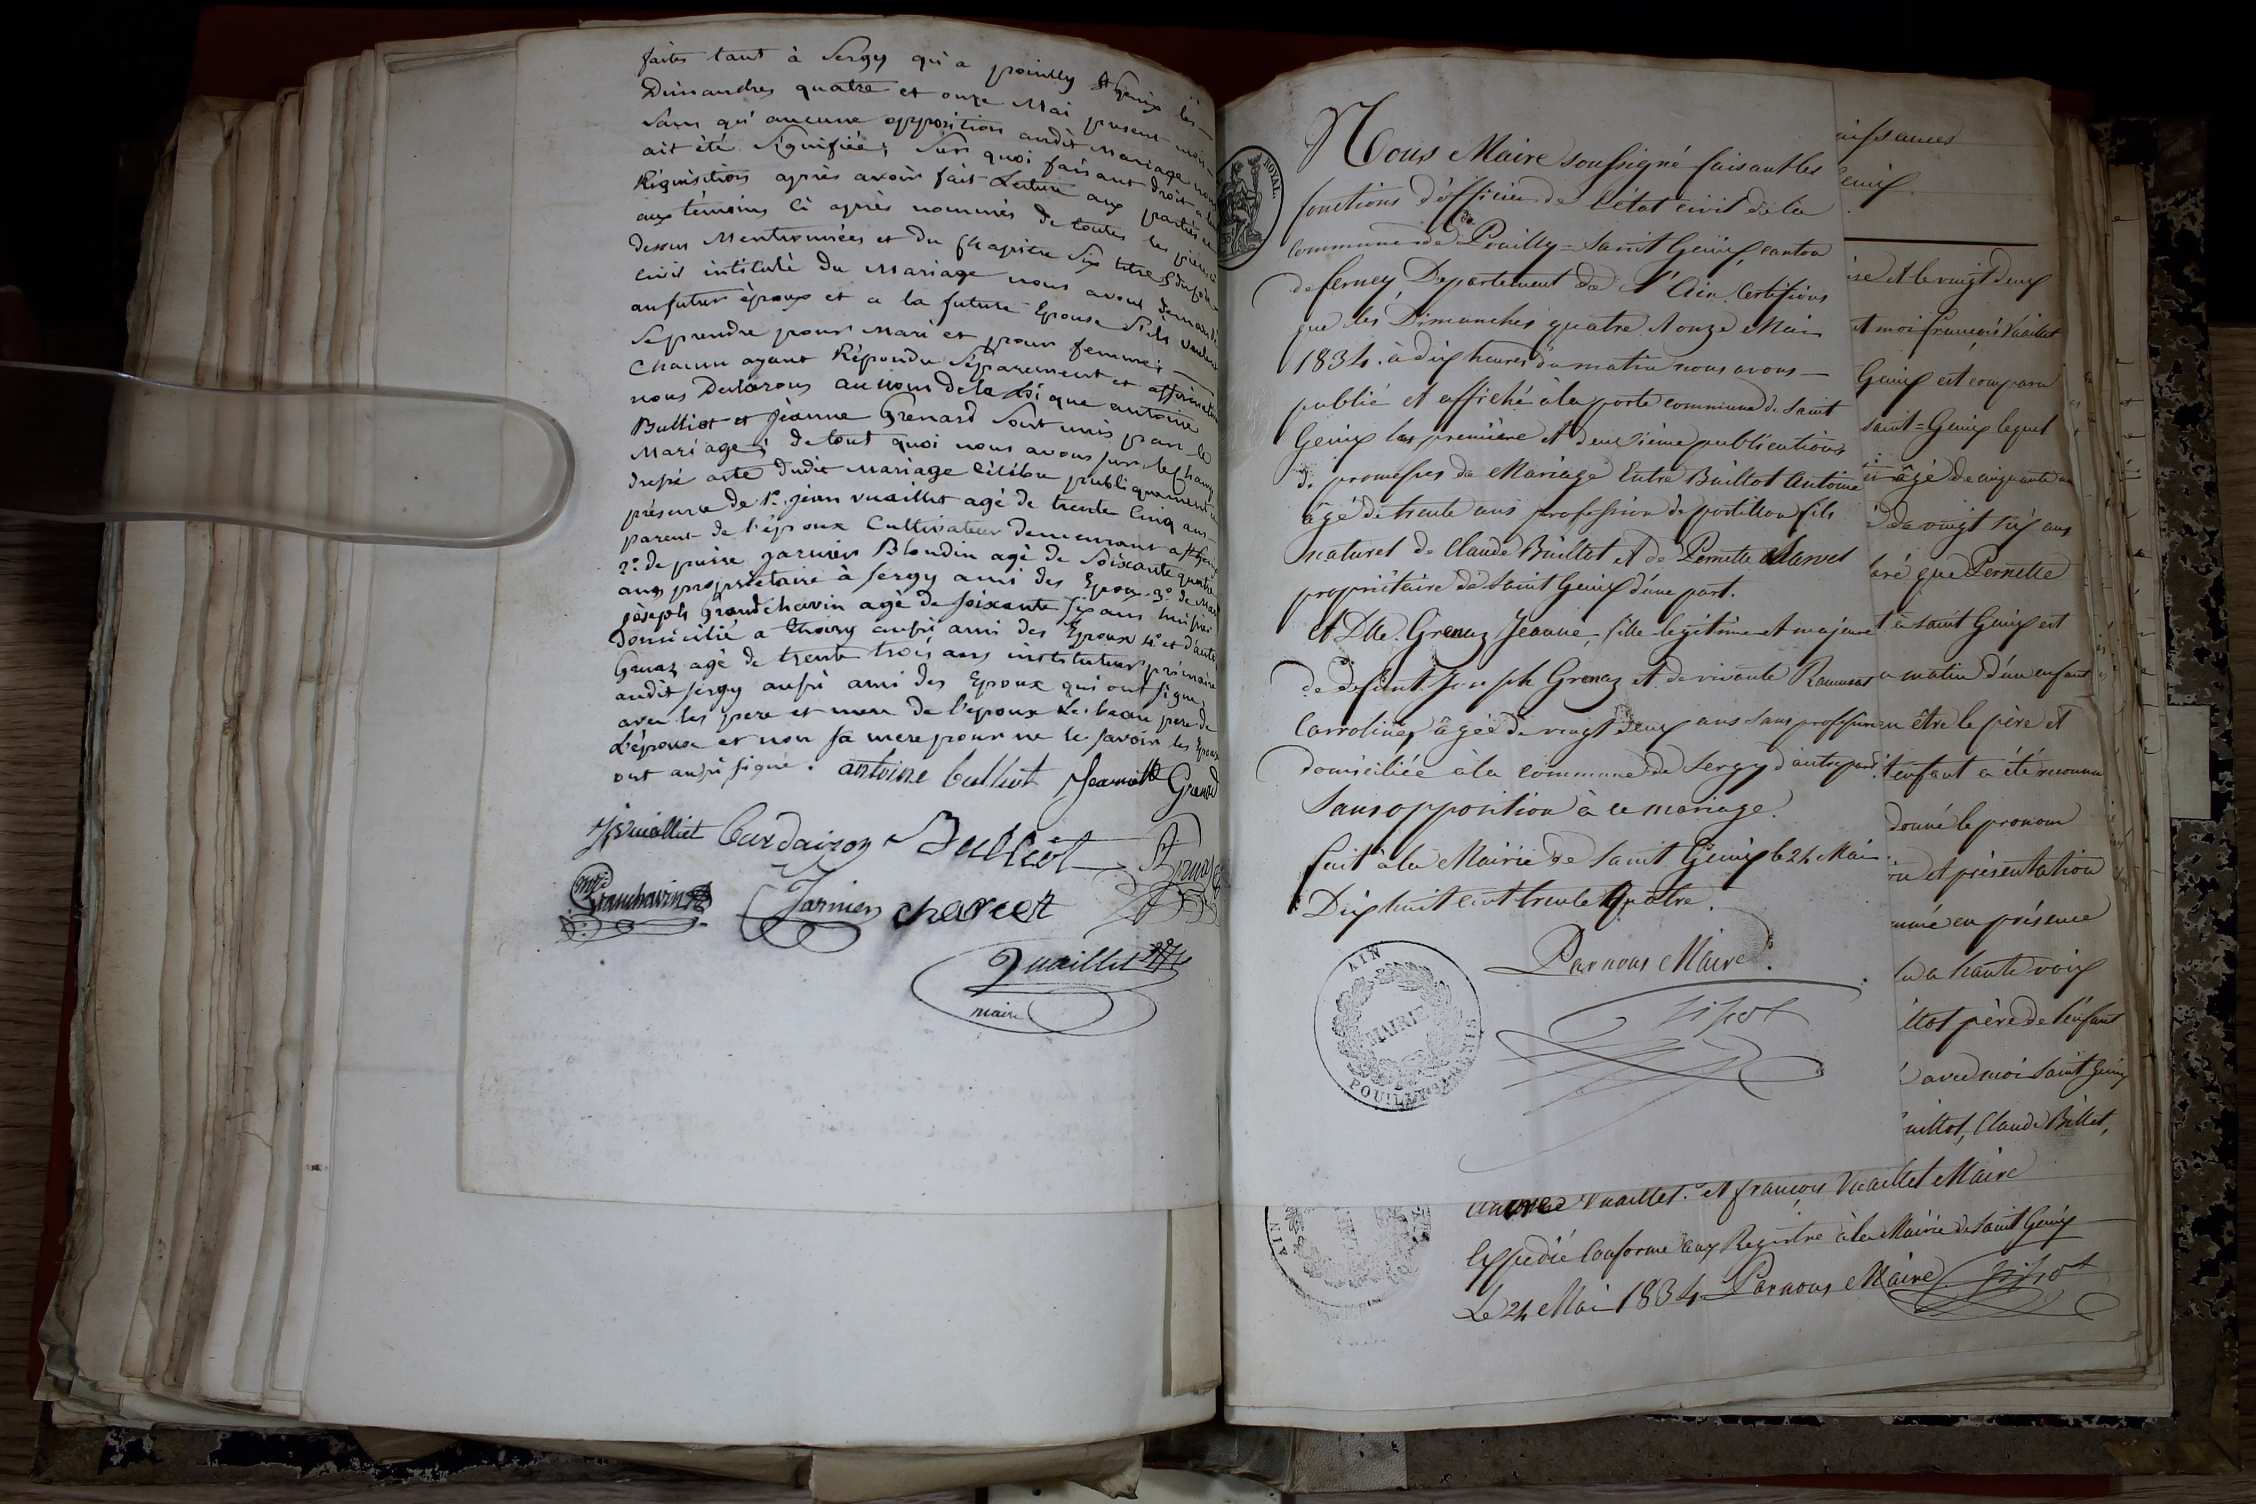 faites tant à Sergy qu'a pouilly St Genix les
Dimanches quatre et onze Mai present mois
sans qu'aucune opposition audit Mariage nous
ait été Signifiée; Sur quoi faisant droit a la
Réquisition après avoir fait Lecture aux parties et
aux témoins ci après nommés de toutes les pièces ci
dessus Mentionnées et du Chapitre Six titre 5 du Code
civil intitulé du Mariage nous avons demandé
au futur époux et a la future Epouse S'ils veulent
se prendre pour Mari et pour femme;
Chacun ayant Répondu Séparement et affirmativ
nous Déclarons au nom de la Loi que antoine
Bulliot et Jeanne Grenard Sont unis par le
Mariage; de tout quoi nous avons sur le Champ
dressé acte dudit Mariage célébré publiquement en
présence de 1°. jean vuaillet agé de trente Cinq ans
parent de l'époux Cultivateur demeurant a St Genix
2°. de pierre jarnier Blondin agé de Soixante quatre
ans propriétaire à Sergy ami des Epoux 3°. de Marc
joseph Grandchavin agé de soixante six ans huissier
Domicilié a Thoiry aussi ami des Epoux 4°. et d'autre
Genaz agé de trente trois ans instituteur primaire
audit Sergy aussi ami des Epoux qui ont signé
avec les pere et mere de l'epoux Le beau pere de
L'épouse et non sa mere pour ne le savoir les Epoux
ont aussi signé. antoine bulliot Jeannette Grenard
Bulliot
mj
Grandchavin Jarnier charvet
Vuaillet
maire
ROYAL
Nous Maire soussigné faisant les
fonctions d'officier de l'état civil de la
commune de Pouilly=Saint Genix, canton
de ferney Departement de l'Ain. Certifions
que les Dimanches quatre & onze Mai
1834. à dix heures du matin nous avons
publié et affiché à la porte commune de Saint
Genix les première et deuxième publications
de promesses de Mariage Entre Buillot Antoine
âgé de trente ans profession de postillon fils
naturel de Claude Buillet et de Pernette Charvet
propriétaire de Saint Genix d'une part.
et Dlle. Grenaz Jeanne, fille légitime et majeure
de defunt Joseph Grenaz et de vivante Ramusat
Carroline, âgée de vingt deux ans sans profession
domiciliée à la commune de Sergy d'autre part
Sans opposition à ce mariage.
fait à la Mairie de Saint Genix le 24 Mai
Dix huit cent trente Quatre.
Par nous Maire
AIN
MAIRIE
DE
POUILLY ST GENIS
aissances
Genix.
ise et le vingt deux
et moi françois Vuaillet
Genix est comparu
Saint=Genix lequel
âgé de cinquante un
é de vingt six ans
laré que Pernette
t à Saint Genix est
u matin d'un enfant
en être le père et
t enfant a été reconnu
donné le pronom
on et présentation
nmé en présence
lu a haute voix
llot père de l'enfant
é avec moi Saint Genix
uillot, Claude Billet,
Vuaillet. et françois Vuaillet Maire
Expédié Conforme aux Registre à la Mairie de Saint Genix
Le 24 Mai 1834 Par nous Maire
AIN